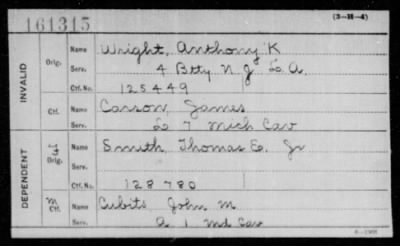 161315
(3-H-4)
INVALID
Orig. Name Wright, Anthony K
Serv. 4 Btty N. J L. A.
Ctf. No. 125449
Ctf. Name Carson, James
Serv. L 7 Mich Cav
DEPENDENT
Orig. Name Smith, Thomas E. Jr
Serv.
Ctf. No. 128780
M Ctf. Name Cubits, John M
Serv. 1 Md Cav